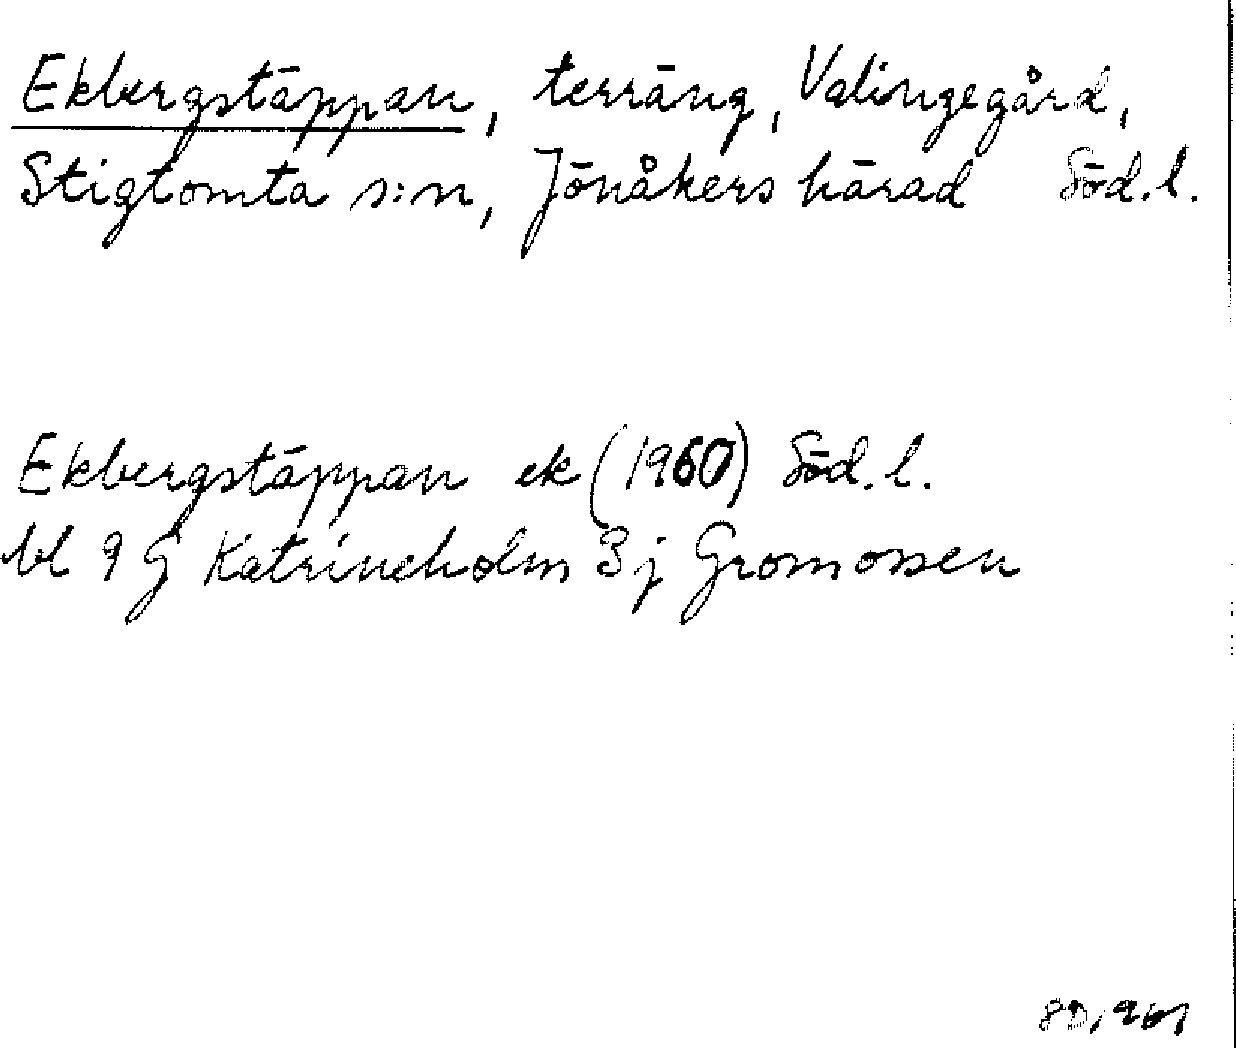 Ekbergstäppan, terräng, Valingegård,
Stigtomta s:n, Jönåkers härad Söd.l.
Ekbergstäppan ek (1960) Söd.l.
bl 9 G Katrineholm 3 j Gromossen